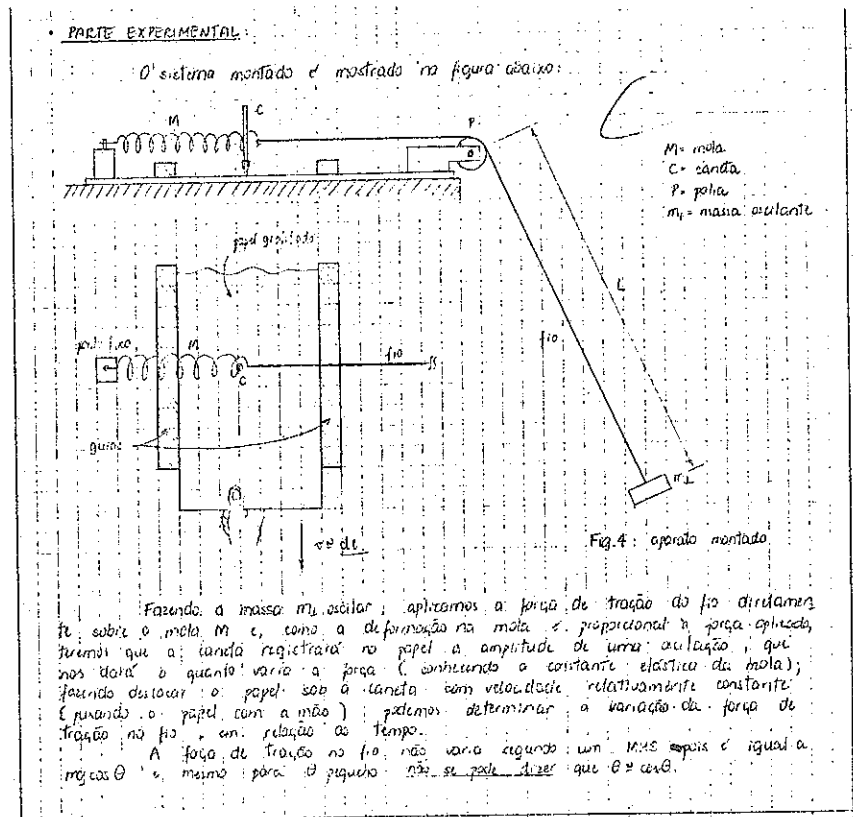 • PARTE EXPERIMENTAL:
O sistema montado é mostrado na figura abaixo:
C
M
P
M = mola
C = caneta
P = polia
m₁ = massa oscilante
papel graduado
L
fio
M
fio
C
guias
m₁
de
Fig. 4: aparato montado
Fazendo a massa m₁ oscilar, aplicamos a força de tração do fio diretamen
te sobre a mola M e, como a deformação na mola é proporcional à força aplicada,
teremos que a caneta registrará no papel a amplitude de uma oscilação, que
nos dará o quanto varia a força (conhecendo a constante elástica da mola);
fazendo deslocar o papel sob a caneta com velocidade relativamente constante
(puxando o papel com a mão) podemos determinar a variação da força de
tração no fio, em relação ao tempo.
A força de tração no fio não varia segundo um MHS pois é igual a
mg cos θ e, mesmo para θ pequeno não se pode dizer que θ ≅ cos θ.